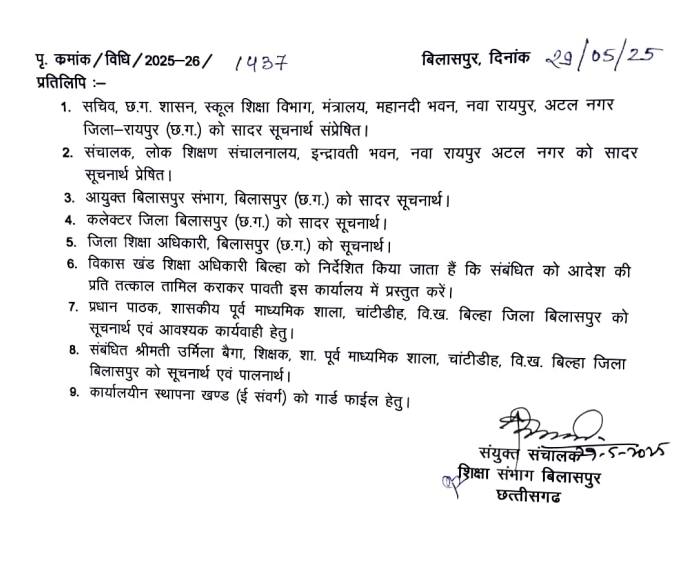 पृ. कमांक/विधि/2025-26/ 1437 बिलासपुर, दिनांक 29/05/25
प्रतिलिपि :–
1. सचिव, छ.ग. शासन, स्कूल शिक्षा विभाग, मंत्रालय, महानदी भवन, नवा रायपुर, अटल नगर
जिला–रायपुर (छ.ग.) को सादर सूचनार्थ संप्रेषित।
2. संचालक, लोक शिक्षण संचालनालय, इन्द्रावती भवन, नवा रायपुर अटल नगर को सादर
सूचनार्थ प्रेषित।
3. आयुक्त बिलासपुर संभाग, बिलासपुर (छ.ग.) को सादर सूचनार्थ।
4. कलेक्टर जिला बिलासपुर (छ.ग.) को सादर सूचनार्थ।
5. जिला शिक्षा अधिकारी, बिलासपुर (छ.ग.) को सूचनार्थ।
6. विकास खंड शिक्षा अधिकारी बिल्हा को निर्देशित किया जाता हैं कि संबंधित को आदेश की
प्रति तत्काल तामिल कराकर पावती इस कार्यालय में प्रस्तुत करें।
7. प्रधान पाठक, शासकीय पूर्व माध्यमिक शाला, चांटीडीह, वि.ख. बिल्हा जिला बिलासपुर को
सूचनार्थ एवं आवश्यक कार्यवाही हेतु।
8. संबंधित श्रीमती उर्मिला बैगा, शिक्षक, शा. पूर्व माध्यमिक शाला, चांटीडीह, वि.ख. बिल्हा जिला
बिलासपुर को सूचनार्थ एवं पालनार्थ।
9. कार्यालयीन स्थापना खण्ड (ई संवर्ग) को गार्ड फाईल हेतु।
संयुक्त संचालक 29-5-2025
शिक्षा संभाग बिलासपुर
छत्तीसगढ